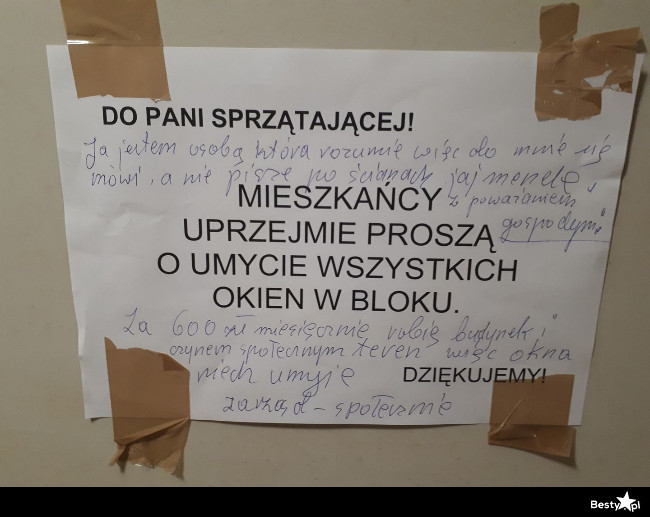 DO PANI SPRZĄTAJĄCEJ!
Ja jestem osobą która rozumie więc do mnie się
mówi, a nie pisze po ścianach jaj menele
MIESZKAŃCY
z poważaniem
UPRZEJMIE PROSZĄ
gospodyni
O UMYCIE WSZYSTKICH
OKIEN W BLOKU.
Za 600 zł miesięcznie robię budynek i
czynem społecznym teren więc okna
niech umyje
DZIĘKUJEMY!
zarząd - społecznie
Besty.pl